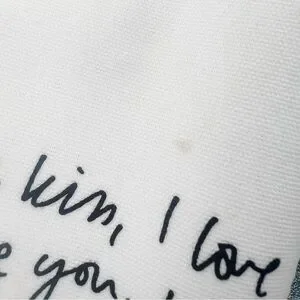 kiss, I love
you,